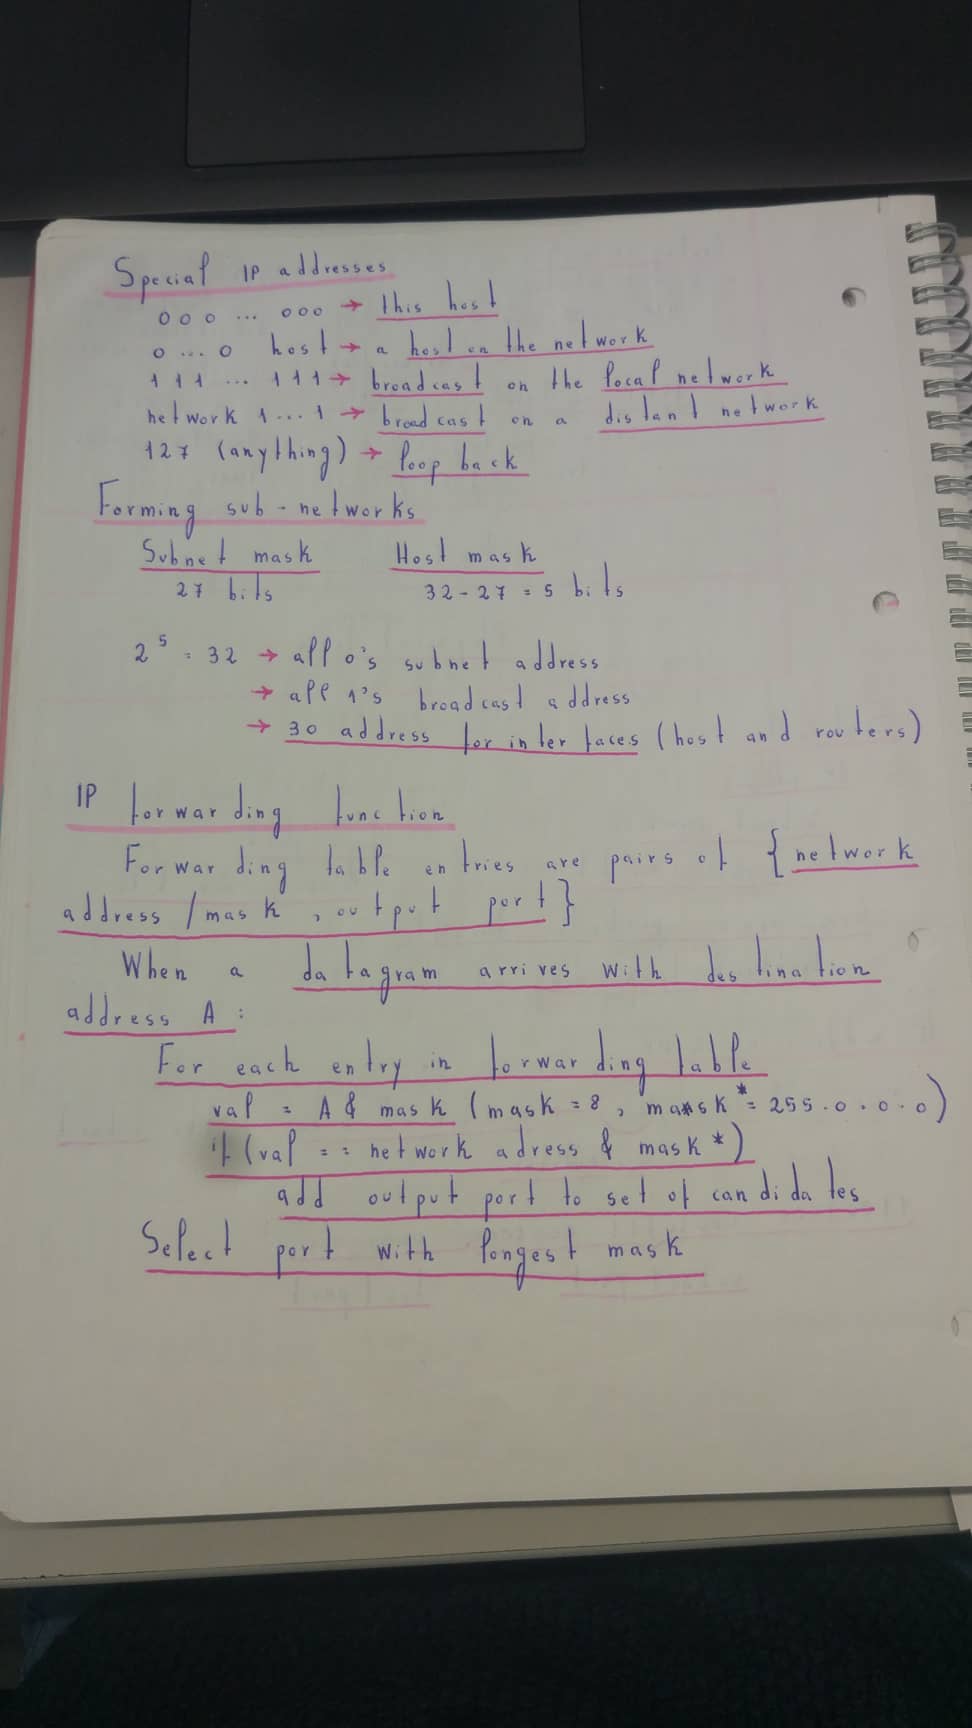 Special IP addresses
000 ... 000 → this host
0 ... 0 host → a host on the network
111 ... 111 → broadcast on the local network
network 1 ... 1 → broadcast on a distant network
127 (anything) → loop back
Forming sub-networks
Subnet mask Host mask
27 bits 32-27 = 5 bits
2^5 = 32 → all 0's subnet address
→ all 1's broadcast address
→ 30 address for interfaces (host and routers)
IP forwarding function
Forwarding table entries are pairs of {network
address/mask, output port}
When a datagram arrives with destination
address A:
For each entry in forwarding table
val = A & mask (mask = 8, mask* = 255.0.0.0)
if (val == network adress & mask*)
add output port to set of candidates
Select port with longest mask